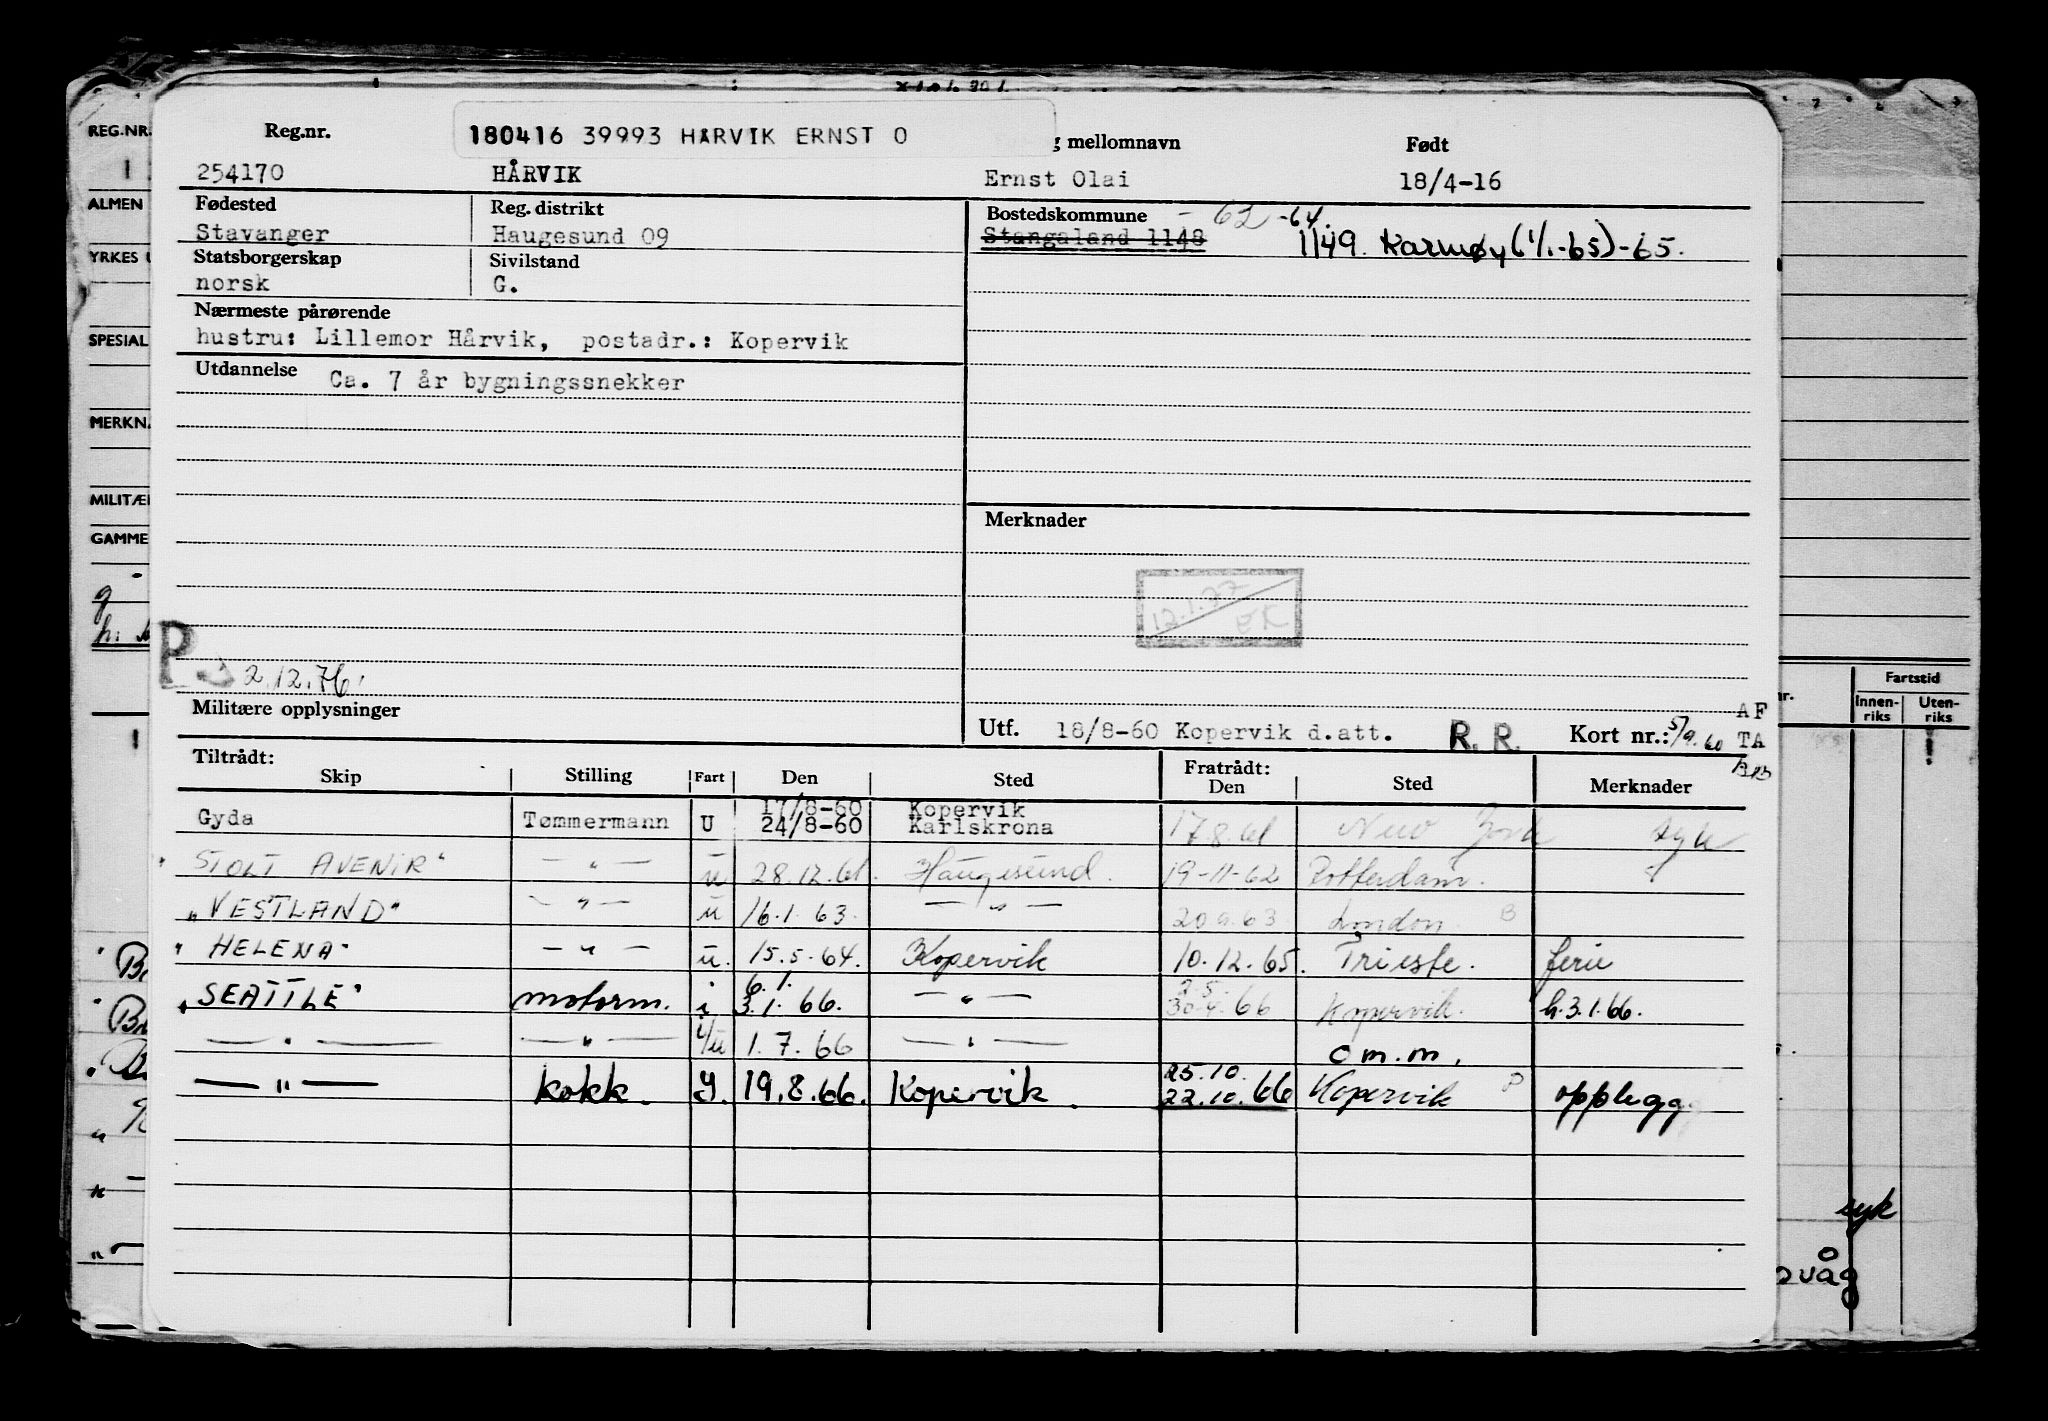 Reg.nr. 180416 39993 HÅRVIK ERNST O g mellomnavn Født
254170 HÅRVIK Ernst Olai 18/4-16
Fødested Reg. distrikt Bostedskommune - 62 -64
Stavanger Haugesund 09 Stangaland 1148 1149. Karmøy (1/1-65)-65.
Statsborgerskap Sivilstand
norsk G.
Nærmeste pårørende
hustru: Lillemor Hårvik, postadr.: Kopervik
Utdannelse Ca. 7 år bygningssnekker
Merknader
12.1.77
EK
P.
2.12.76
Militære opplysninger
Utf. 18/8-60 Kopervik d.att. R. R. Kort nr.: 5/9.60
AF
TA
Tiltrådt: Fratrådt:
Skip Stilling Fart Den Sted Den Sted Merknader
17/8-60 Kopervik
Gyda Tømmermann U 24/8-60 Karlskrona 17.8.61 New York syk
"STOLT AVENIR" — " — u 28.12.61. Haugesund. 19-11-62 Rotterdam.
"VESTLAND" — " — u 16.1.63. — " — 20.9.63 London B
"HELENA" — " — u. 15.5.64. Kopervik 10.12.65. Trieste. ferie
6.1. 2.5.
"SEATTLE" motorm. i 3.1.66. — " — 30.4.66 Kopervik. h.3.1.66.
— " — — " — i/u 1.7.66 — " — o m.m.
25.10.
— " — kokk. y. 19.8.66. Kopervik. 22.10.66 Kopervik P opplegg
REG.NR.
ALMEN
YRKES U
SPESIAL
MERKN.
MILITÆR
GAMME
Fartstid
Innen-riks Uten-riks
syk
våg